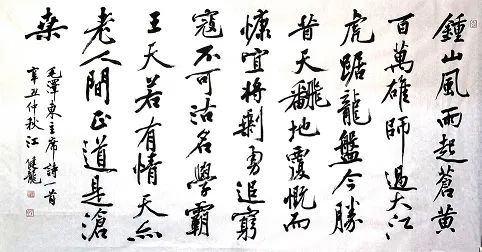 鍾山風雨起蒼黃
百萬雄師過大江
虎踞龍盤今勝
昔天飜地覆慨而
慷宜將剩勇追窮
寇不可沽名學霸
王天若有情天亦
老人間正道是滄
桑
毛澤東主席詩一首
辛丑仲秋江健龍